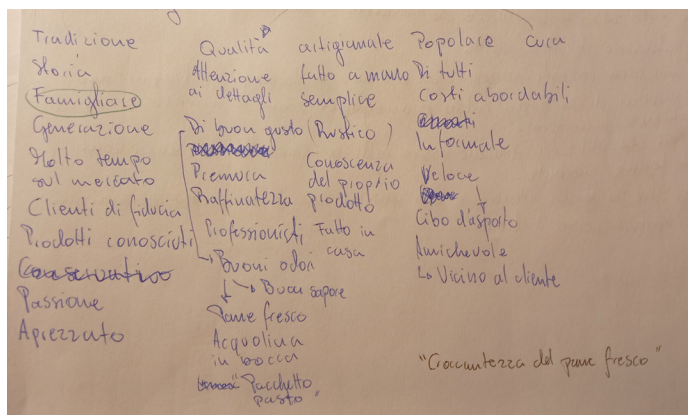 Tradizione
Storia
Famigliare
Generazione
Molto tempo
sul mercato
Clienti di fiducia
Prodotti conosciuti
Conservativo
Passione
Aprezzato
Qualità
Attenzione
ai dettagli
Di buon gusto (Rustico)
Premura
Raffinatezza
Professionisti
Buoni odori
Buon sapore
Pane fresco
Acquolina
in bocca
"Pacchetto
pasto"
artigianale
fatto a mano
semplice
Conoscenza
del proprio
prodotto
Fatto in
casa
Popolare cura
Di tutti
Costi abordabili
Informale
Veloce
Cibo d'asporto
Amichevole
Vicino al cliente
"Croccantezza del pane fresco"